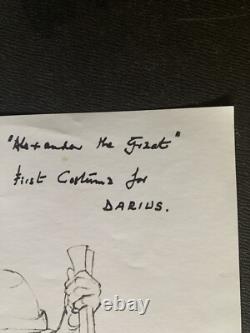 "Alexander the Great"
First Costume for
DARIUS.
ebay